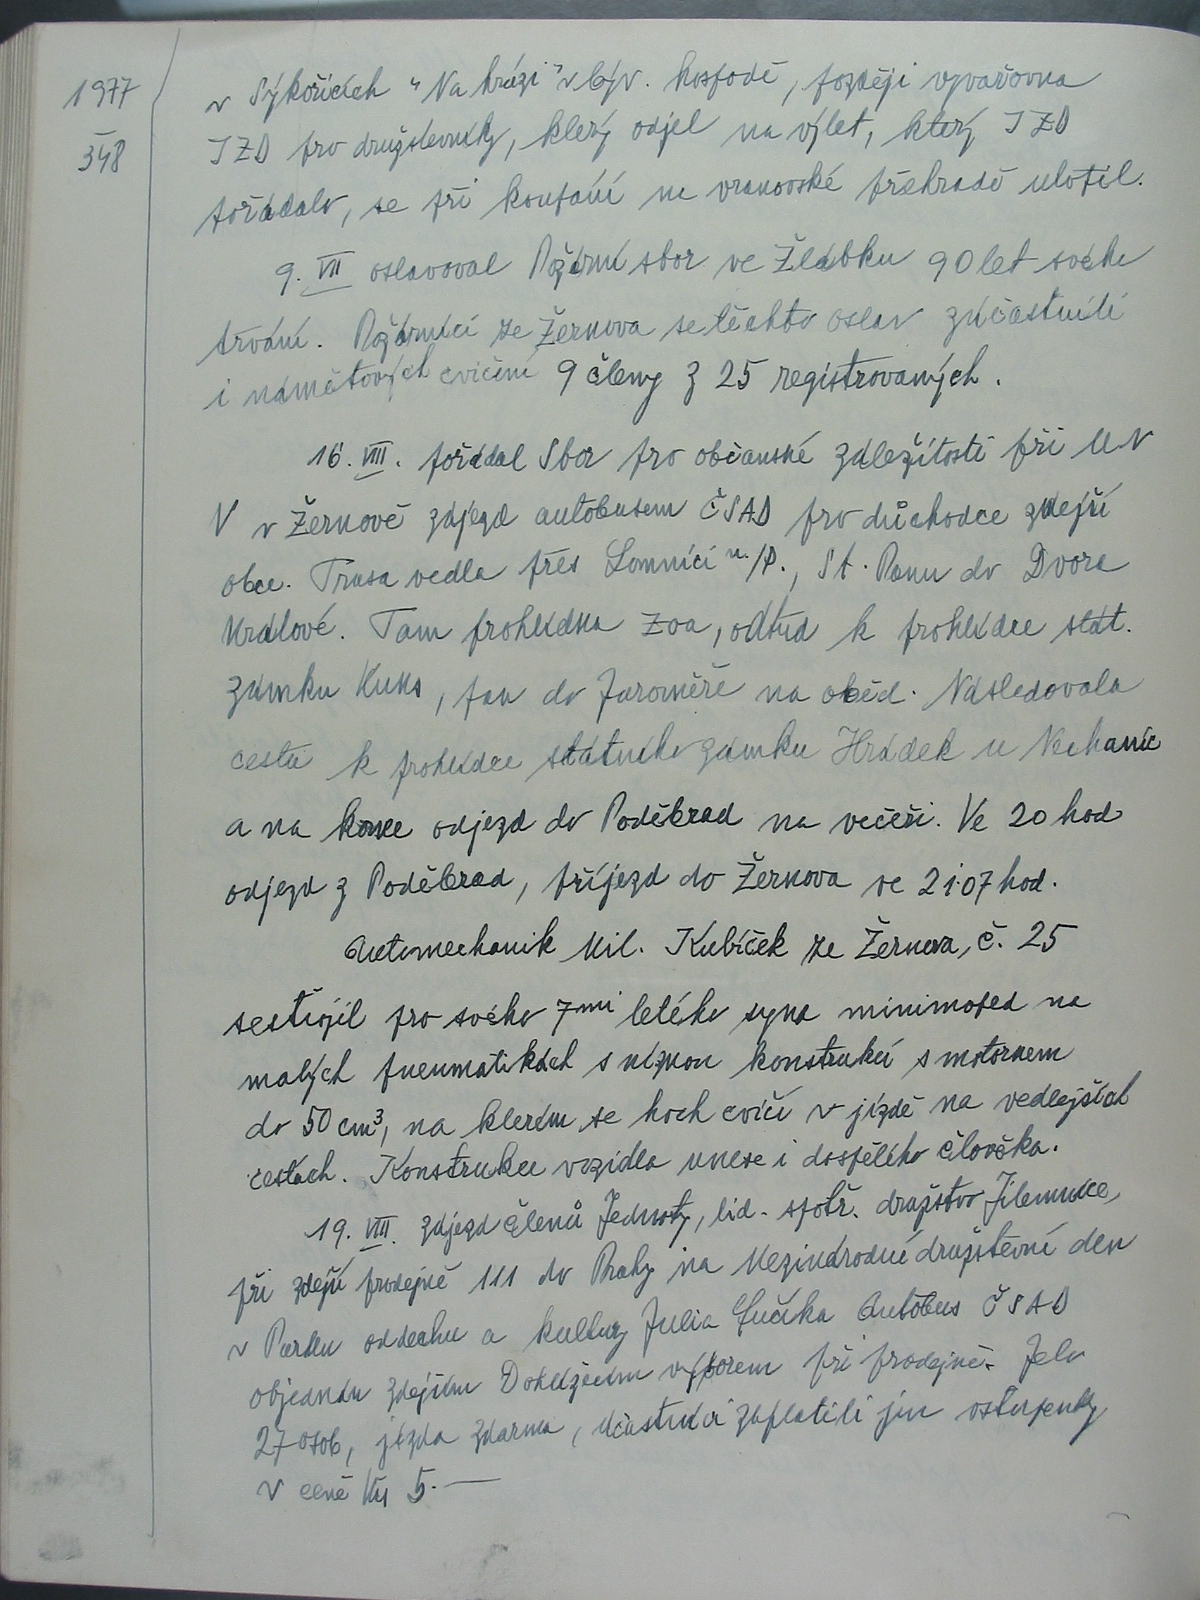 1977
348
v Sýkořicích "Na hrázi" v býv. hospodě, později vyvařovna
JZD pro družstevníky, který odjel na výlet, který JZD
pořádalo, se při koupání na vranovské přehradě utopil.
9. VII oslavoval Požární sbor ve Žlábku 90 let svého
trvání. Požárníci ze Žernova se těchto oslav zúčastnili
i námětových cvičení 9 členy z 25 registrovaných.
16. VIII. pořádal Sbor pro občanské záležitosti při MN
V v Žernově zájezd autobusem ČSAD pro důchodce zdejší
obce. Trasa vedla přes Lomnici n./P., St. Paku do Dvora
Králové. Tam prohlídka Zoa, odtud k prohlídce stát.
zámku Kuks, pak do Jaroměře na oběd. Následovala
cesta k prohlídce státního zámku Hrádek u Nechanic
a na konec odjezd do Poděbrad na večeři. Ve 20 hod
odjezd z Poděbrad, příjezd do Žernova ve 21.07 hod.
Automechanik Mil. Kubíček ze Žernova, č. 25
sestrojil pro svého 7mi letého syna minimoped na
malých pneumatikách s nízkou konstrukcí s motorkem
do 50 cm³, na kterém se hoch cvičí v jízdě na vedlejších
cestách. Konstrukce vozidla unese i dospělého člověka.
19. VIII. zájezd členů Jednoty, lid. spotř. družstvo Jilemnice,
při zdejší prodejně 111 do Prahy na Mezinárodní družstevní den
v Parku oddechu a kultury Julia Fučíka Autobus ČSAD
objednán zdejším Dohlížecím výborem při prodejně. Jelo
27 osob, jízda zdarma, účastníci zaplatili jen vstupenky
v ceně Kčs 5.—